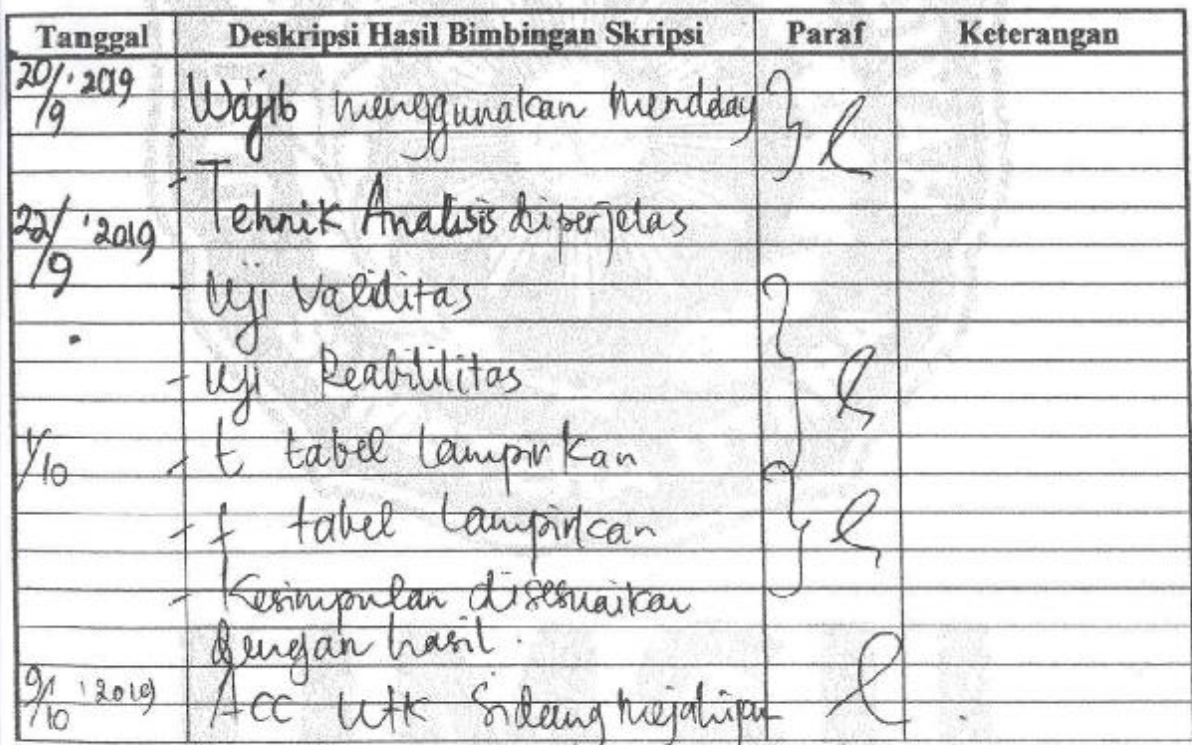 Tanggal Deskripsi Hasil Bimbingan Skripsi Paraf Keterangan
20/9 '2019 Wajib menggunakan mendday
- Tehnik Analisis diperjelas
22/9 '2019
- Uji Validitas
- Uji Reabililitas
1/10 - t tabel lampirkan
- f tabel lampirkan
- Kesimpulan disesuaikan
dengan hasil.
9/10 '2019 ACC utk Sidang mejahijau